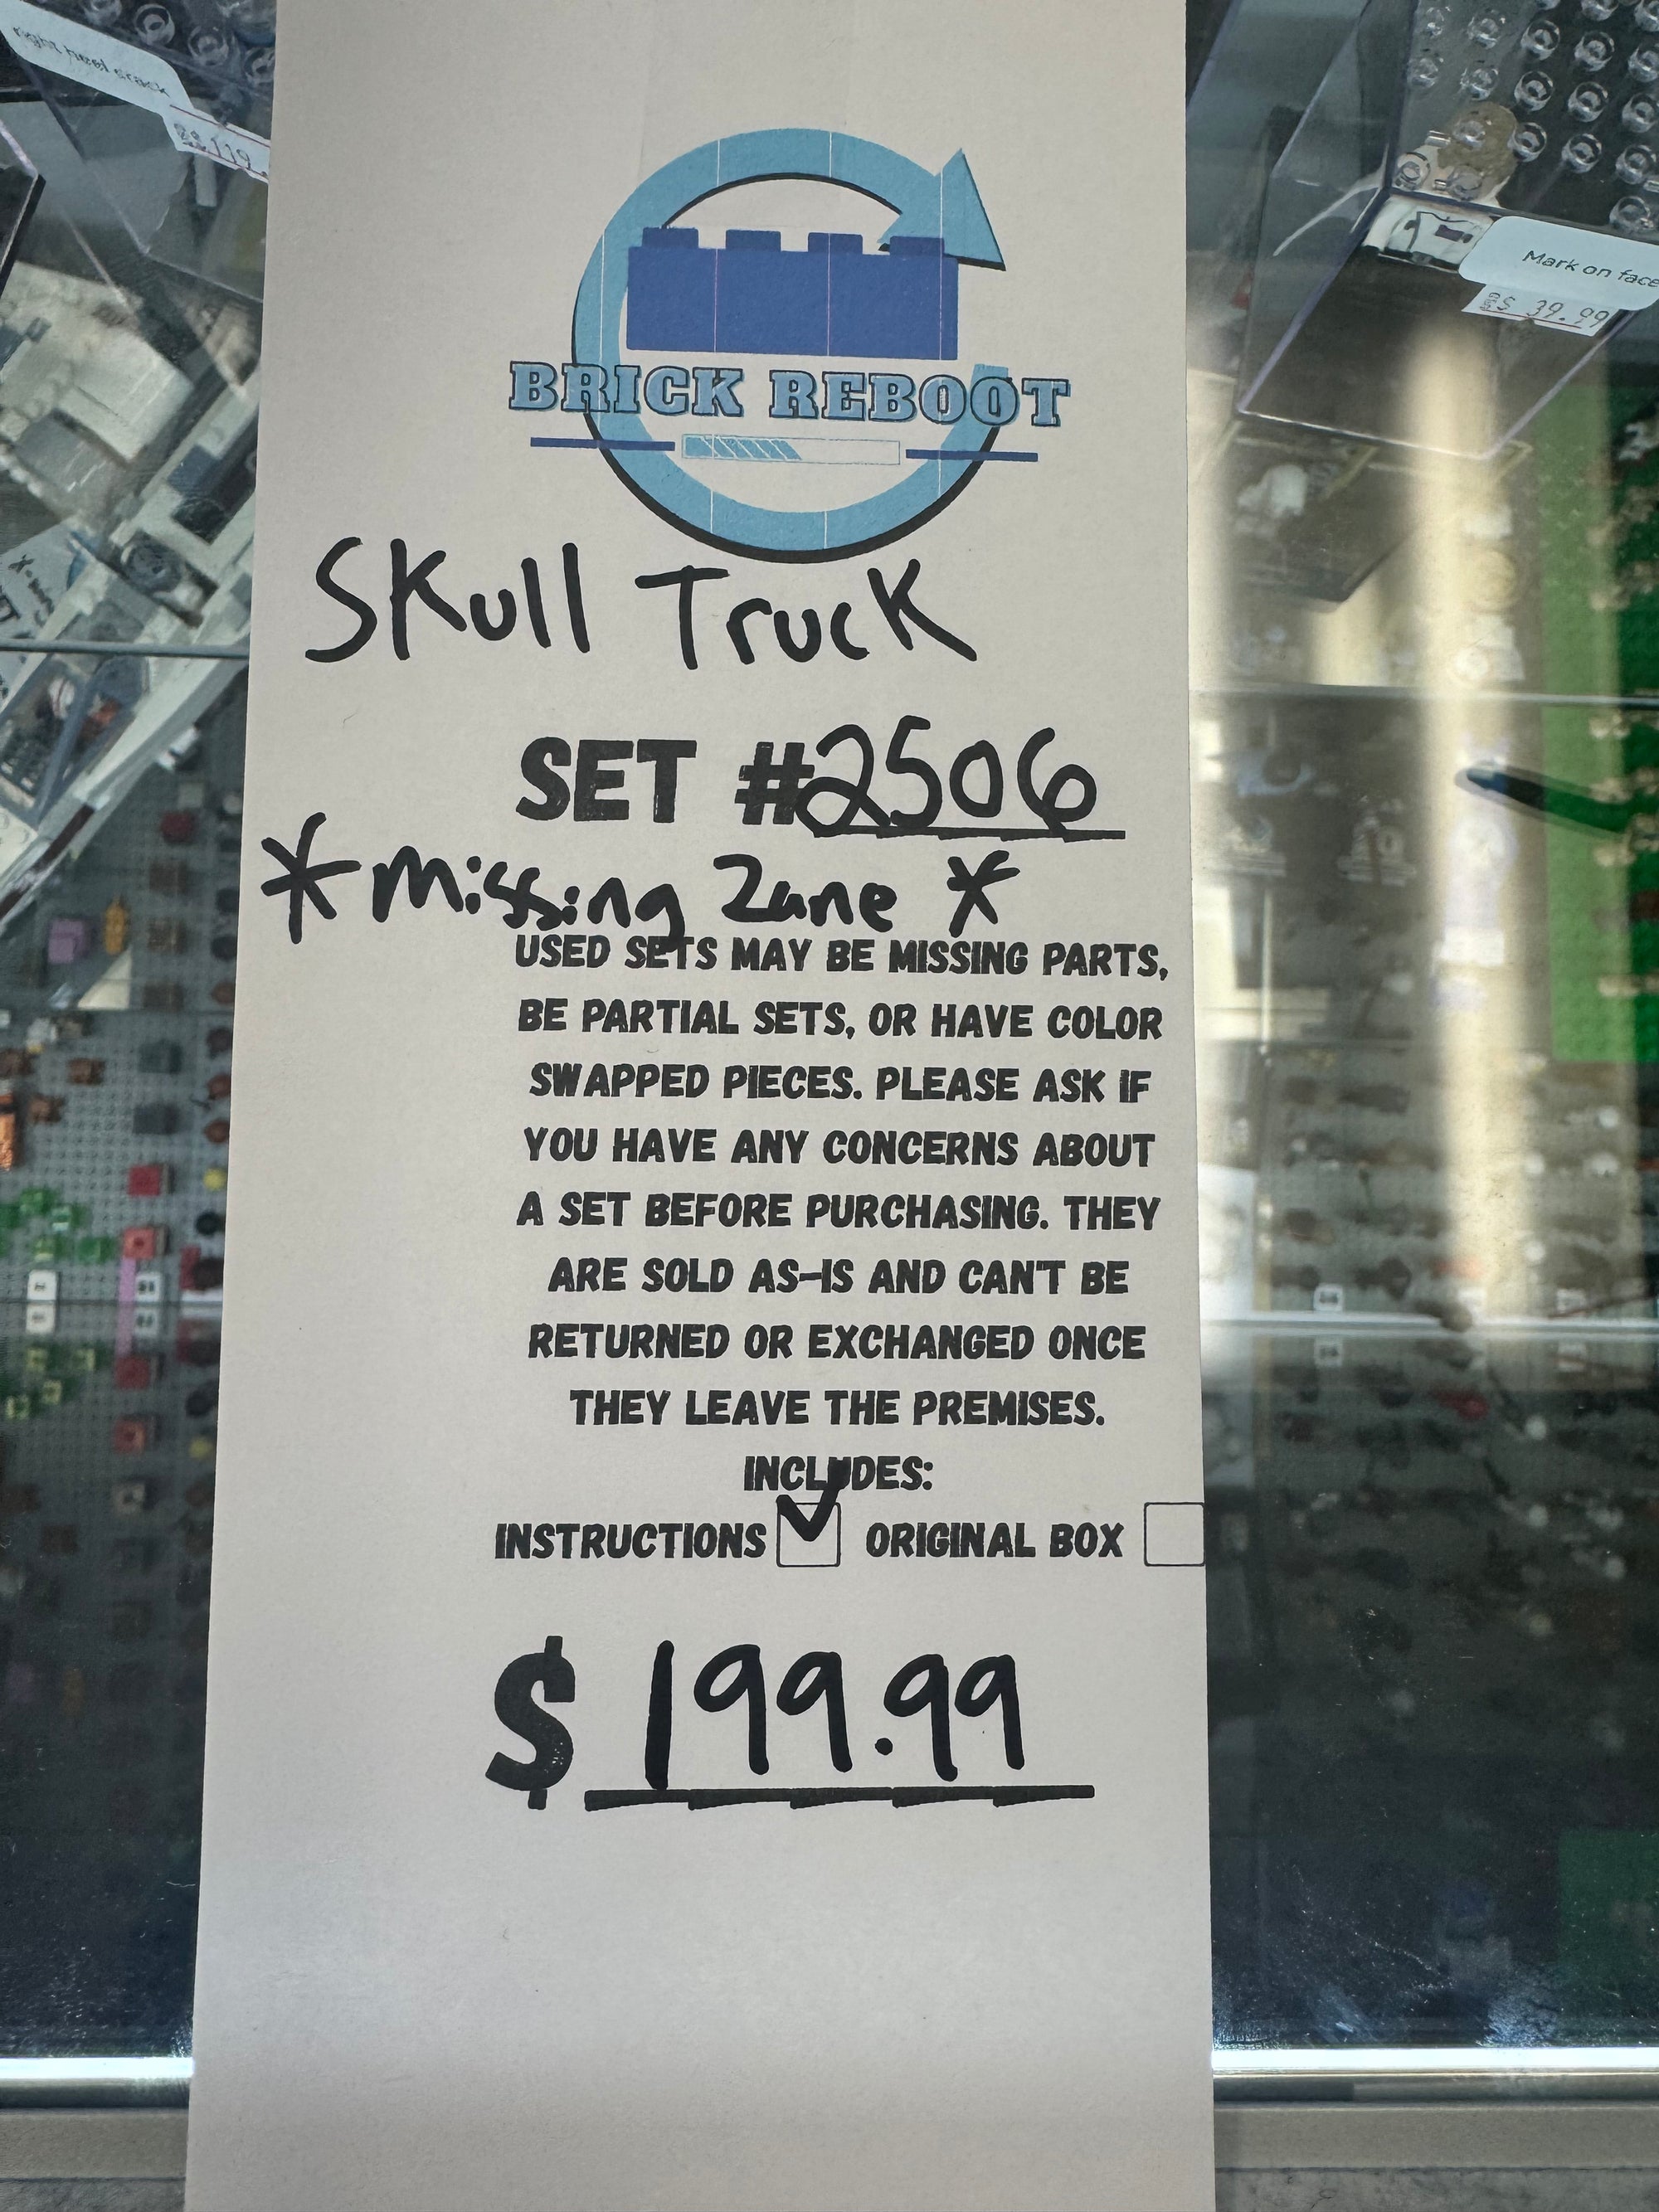 right heel crack
$119.
Mark on face
$ 39.99
BRICK REBOOT
Skull Truck
SET #2506
*Missing Zane*
USED SETS MAY BE MISSING PARTS,
BE PARTIAL SETS, OR HAVE COLOR
SWAPPED PIECES. PLEASE ASK IF
YOU HAVE ANY CONCERNS ABOUT
A SET BEFORE PURCHASING. THEY
ARE SOLD AS-IS AND CAN'T BE
RETURNED OR EXCHANGED ONCE
THEY LEAVE THE PREMISES.
INCLUDES:
INSTRUCTIONS ORIGINAL BOX
$199.99